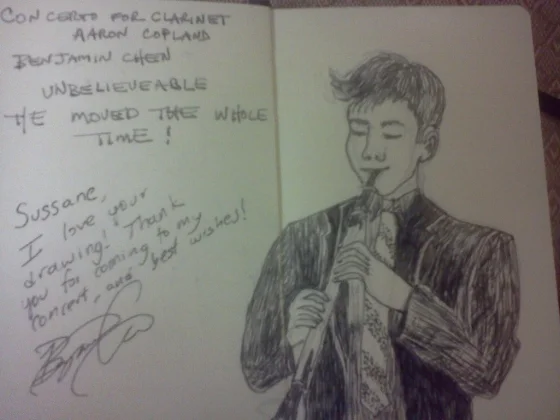 CONCERTO FOR CLARINET
AARON COPLAND
BENJAMIN CHEN
UNBELIEVEABLE
HE MOVED THE WHOLE
TIME!
Sussane,
I love your
drawing! Thank
you for coming to my
concert, and best wishes!